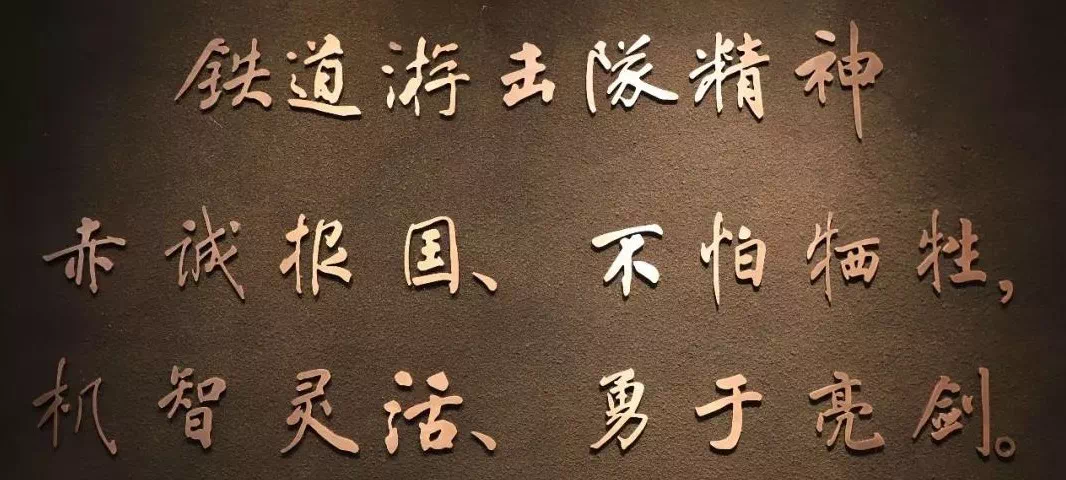 铁道游击隊精神
赤诚报国、不怕牺牲，
机智灵活、勇于亮剑。